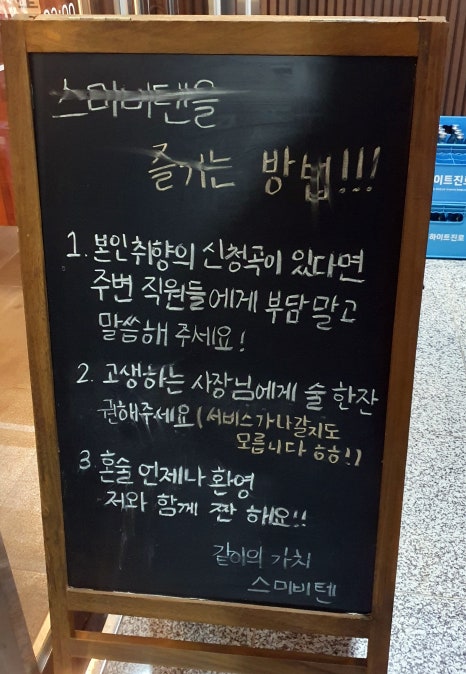 스미비텐을
즐기는 방법!!!
1. 본인취향의 신청곡이 있다면
주변 직원들에게 부담말고
말씀해 주세요!
2. 고생하는 사장님에게 술 한잔
권해주세요 (서비스가나갈지도
모릅니다 ㅎㅎ!)
3. 혼술 언제나 환영
저와 함께 짠 해요!!
같이의 가치
스미비텐
하이트진로
하이트진로